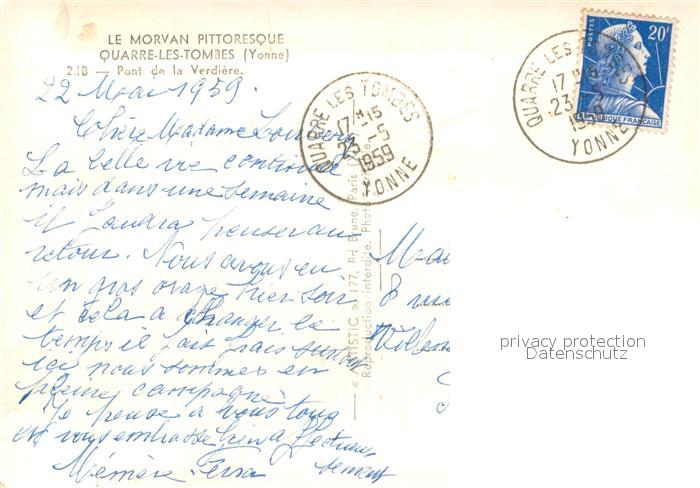 LE MORVAN PITTORESQUE
QUARRE-LES-TOMBES (Yonne)
2.IB — Pont de la Verdière.
22 Mai 1959.
Chère Madame
La belle vie continue
mais dans une semaine
il faudra penser au
retour. Nous avons eu
un gros orage hier soir
et cela a changer le
temps il fait frais surtout
ici nous sommes en
pleine campagne
Je pense à vous tous
et vous embrasse bien affectueu
sement
Mémère
QUARRE LES TOMBES
17H15
23-5
1959
YONNE
« ARTISTIC » 177, Rd Brune, Paris
Reproduction interdite. Photo
POSTES
20F
REPUBLIQUE FRANÇAISE
QUARRE LES
17H
23
YONNE
Ma
8
Ville
privacy protection
Datenschutz